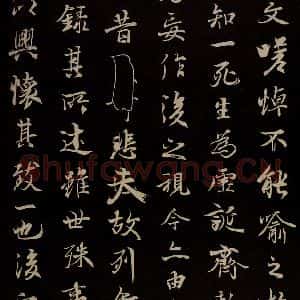 文嗟悼不能喻之
知一死生為虛誕齊
妄作後之視今亦由
昔悲夫故列
錄其所述雖世殊事
以興懷其致一也後
Shufawang.CN